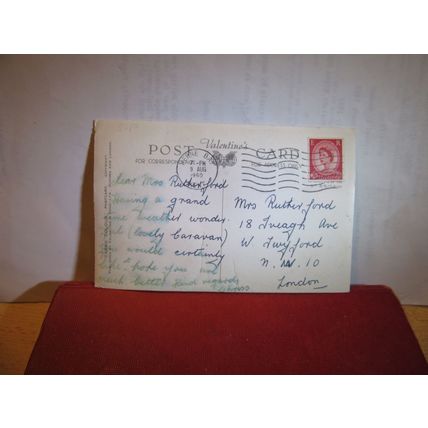 POST Valentine's CARD
FOR CORRESPONDENCE
FOR ADDRESS ONLY
-PM
9 AUG
1960
Dear Mrs Rutherford
Having a grand
time weather wonder
ful (lovely Caravan)
You would certainly
hope you are
much better Kind regards
Mrs Rutherford
18 Iveagh Ave
W. Twyford
N. W. 10
London